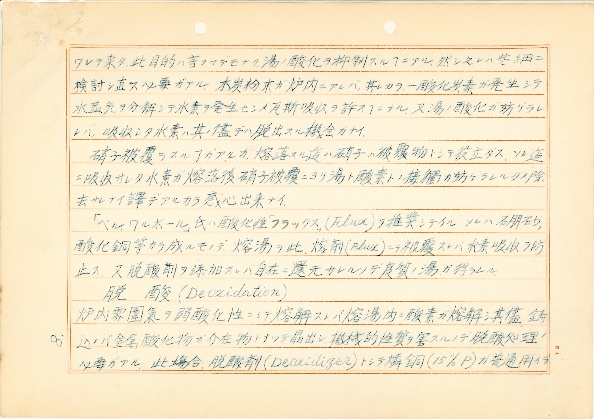 ワレテ来タ。此目的ハ言フマデモナク湯ノ酸化ヲ抑制スルニアル。然シ之レハ些細ニ
検討シ直ス必要ガアル。木炭粉末ガ炉内ニアレバ、其レカラ一酸化炭素ガ発生シテ
水蒸気ヲ分解シテ水素ヲ発生セシメ瓦斯吸収ヲ許スコトニナル。又湯ノ酸化ガ妨ゲラレ
レバ、吸収シタ水素ハ其儘デハ脱出スル機会ガナイ。
硝子被覆ヲスル アルガ、熔落スル迄ハ硝子ハ被覆物トシテ役立タズ、ソレ迄
ニ吸収サレタ水素ガ熔落後硝子被覆ニヨリ湯ト酸素トノ接觸ガ妨ゲラレルタメ除
去サレナイ譯デアルカラ感心出来ナイ。
氏ハ酸化性フラックス(Flux)ヲ推奨シテイル。ソレハ硼砂、
酸化銅等カラ成ルモノデ、熔湯ヲ此ノ熔剤(Flux)ニテ被覆スレバ水素吸収ヲ防
止ス、又脱酸剤ヲ添加スレバ自在ニ還元サレルノデ良質ノ湯ガ得ラレル。
脱 酸 (Deoxidation)
炉内雰囲気ヲ弱酸化性ニシテ熔解スレバ熔湯内ニ酸素ガ熔解シ其儘 鋳
込メバ金属酸化物ガ介在物トシテ晶出シ機械的性質ヲ害スルノデ脱酸処理ノ
必要ガアル。此場合、脱酸剤(Deoxidizer)トシテ燐銅(15% P)ガ普通用イラ